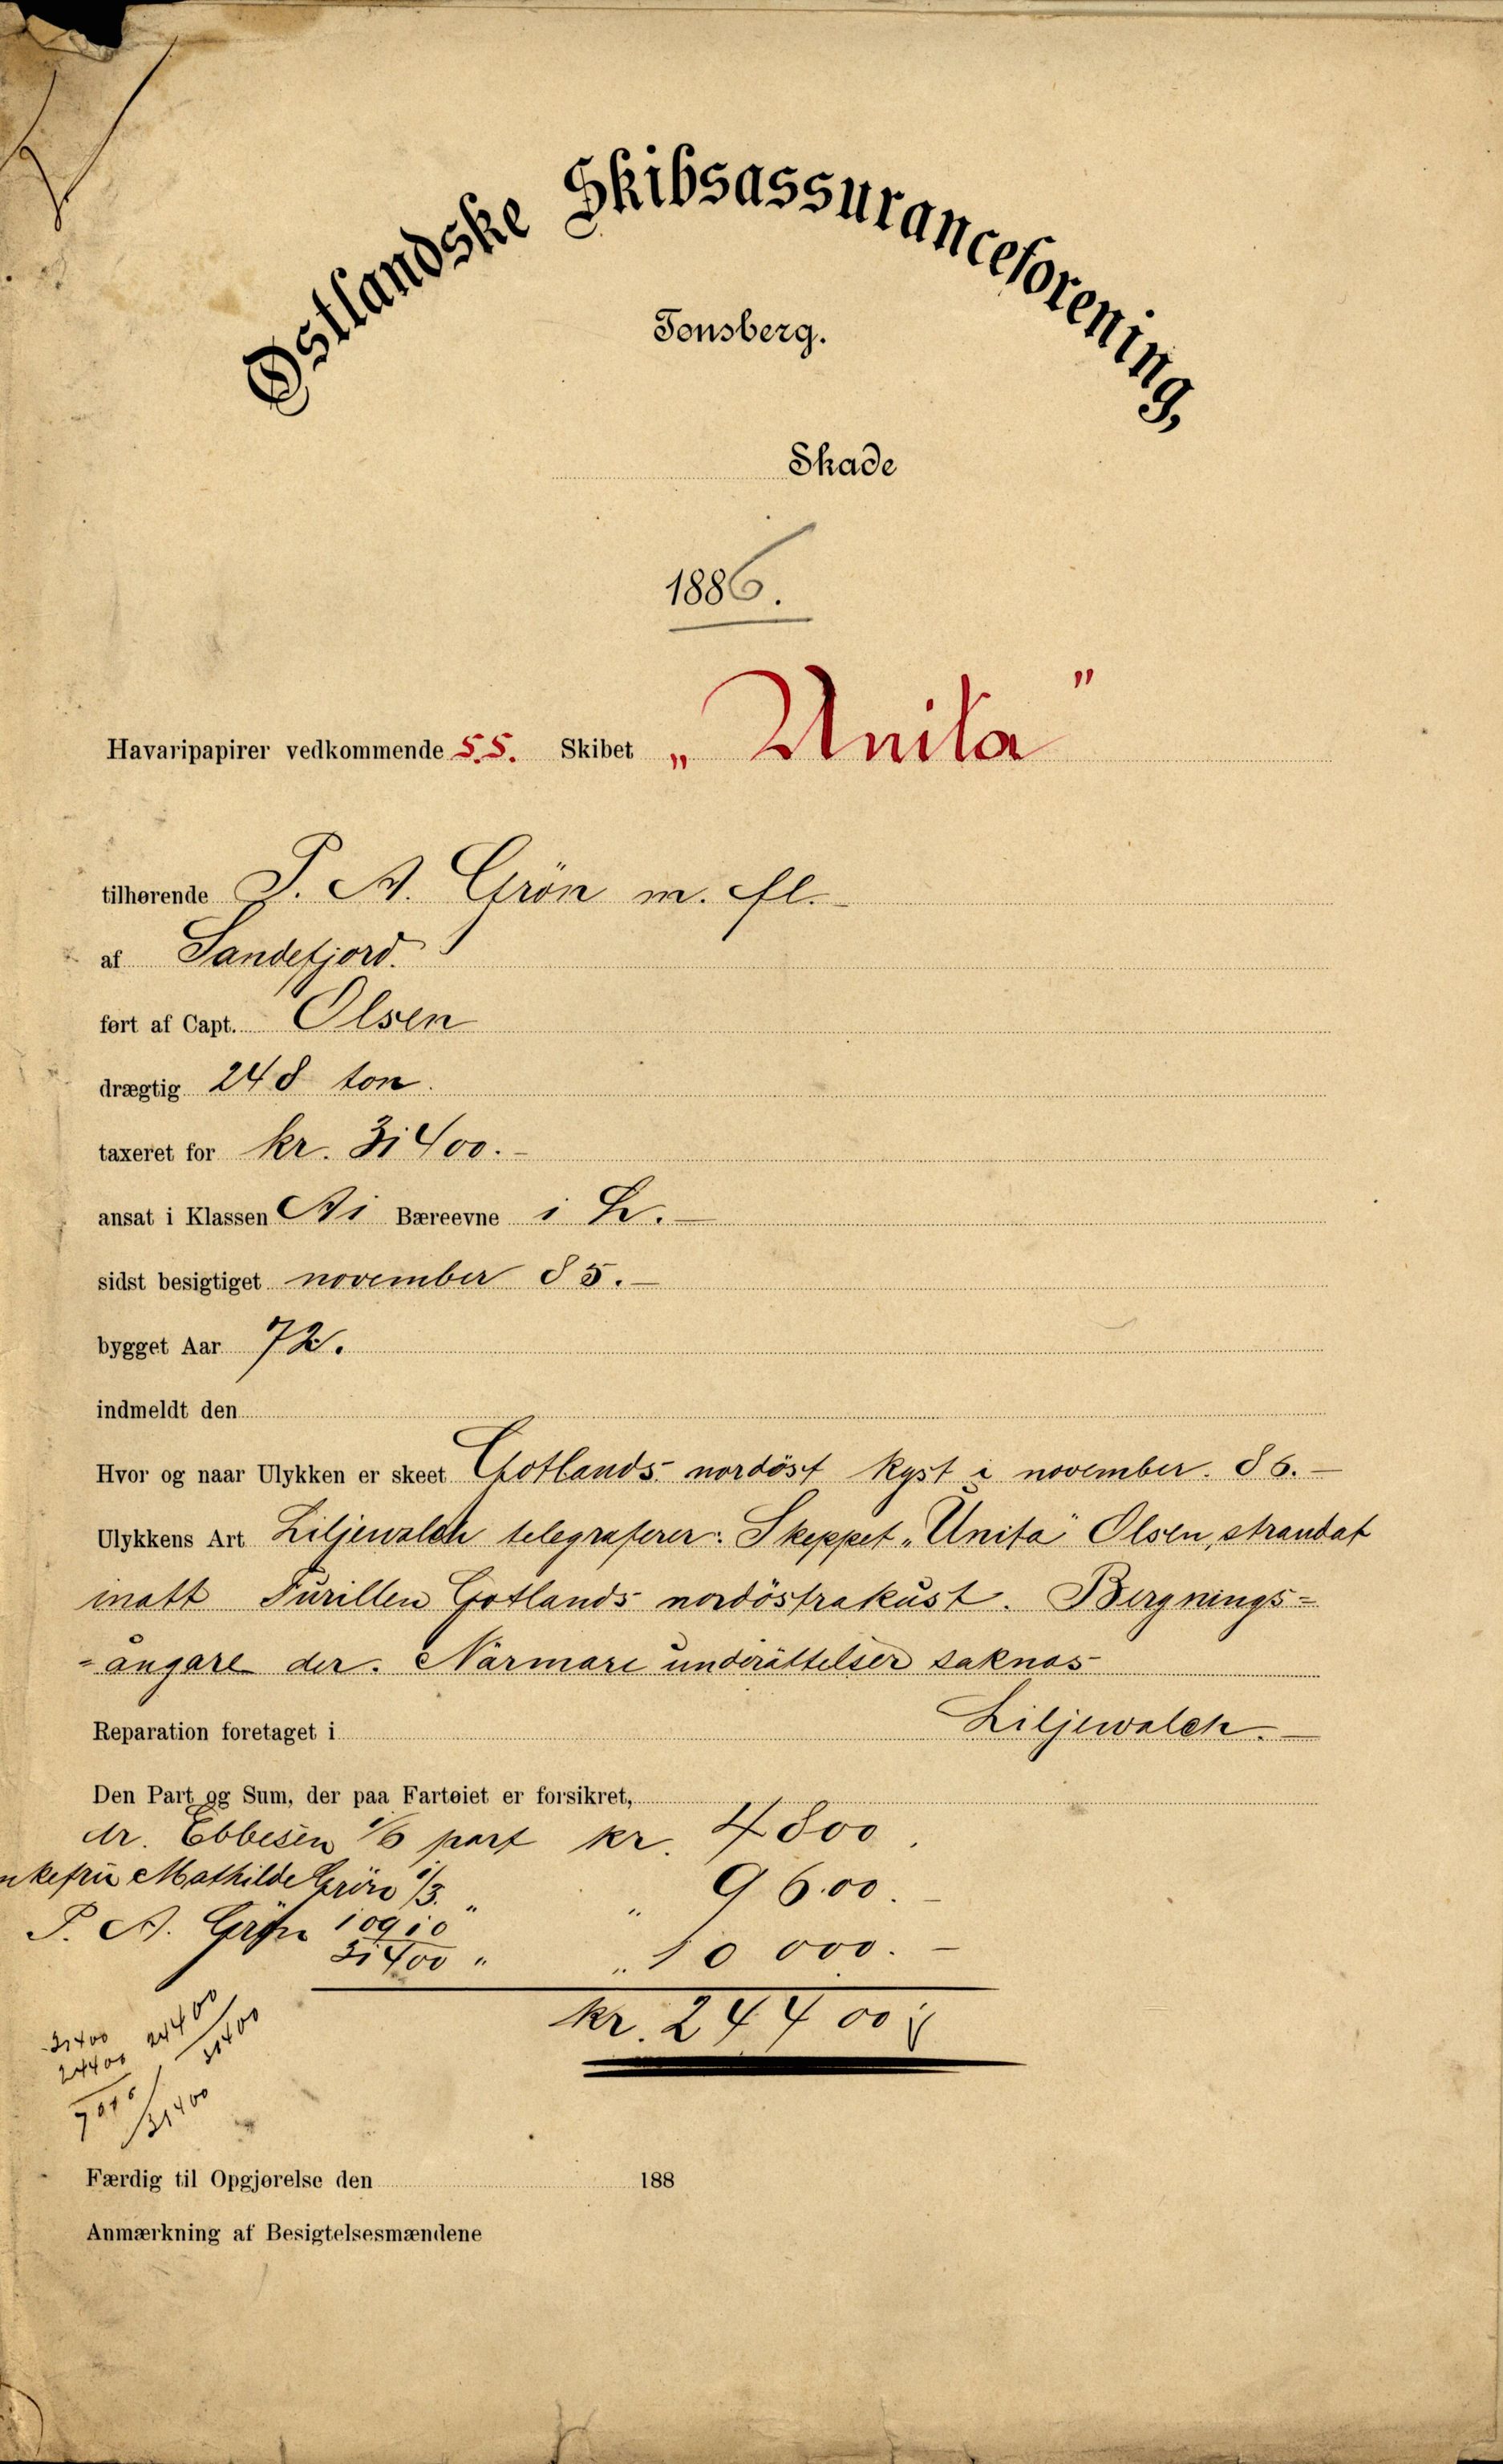 Østlandske Skibsassuranceforening,
Tønsberg.
Skade
1886.
Havaripapirer vedkommende S.S. Skibet „Unita"
tilhørende P. A. Grön m. fl.
af Sandefjord.
ført af Capt. Olsen
drægtig 248 ton.
taxeret for kr. 31400.-
ansat i Klassen A1 Bæreevne 1 L.-
sidst besigtiget november 85.-
bygget Aar 72.
indmeldt den
Hvor og naar Ulykken er skeet Gotlands nordöst kyst i november. 86.-
Ulykkens Art Liljewalch telegraferer: Skeppet „Unita" Olsen, strandat
inatt Furillen Gotlands nordöstrakust. Bergnings=
=ångare der. Närmare underättelser saknas
Liljewalch.-
Reparation foretaget i
Den Part og Sum, der paa Fartøiet er forsikret,
dr. Ebbesen 1/6 part kr. 4800.
enkefru Mathilde Grön 1/3. " " 9600.-
P. A. Grøn 10910/31400 " " 10 000.-
kr. 24400
31400 24400/31400
24400
7000/31400
Færdig til Opgjørelse den 188
Anmærkning af Besigtelsesmændene